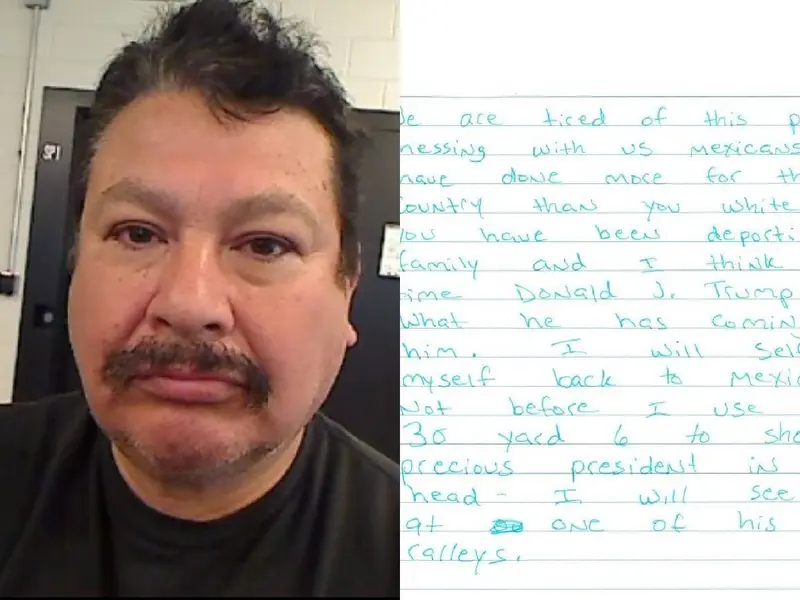 SP1
We are tired of this p
messing with us Mexicans
have done more for th
country than you white
you have been deporti
family and I think
time Donald J. Trump
what he has coming
him. I will self
myself back to Mexic
Not before I use
30 yard 6 to sho
precious president in
head - I will see
at one of his
ralleys.